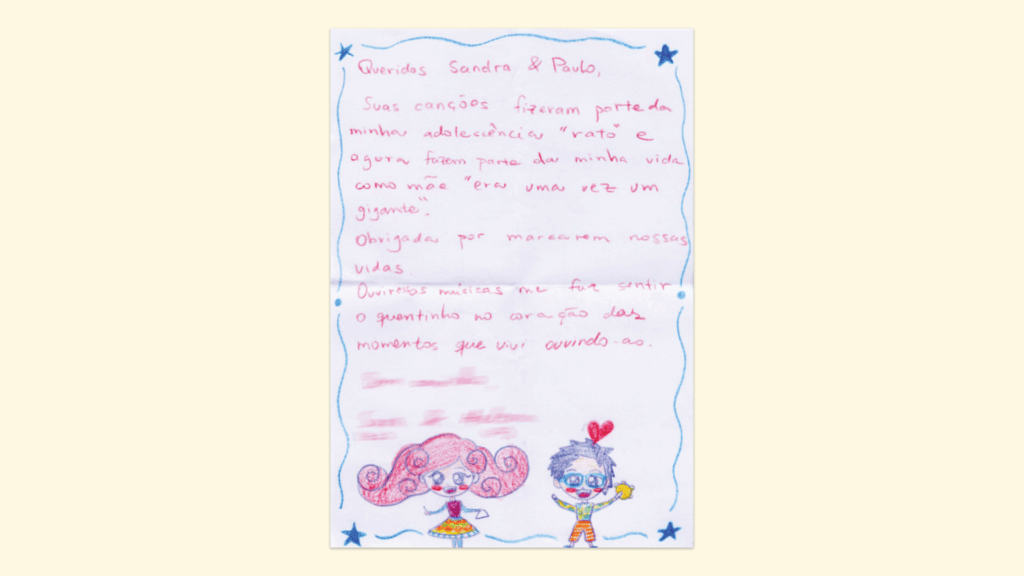 Queridos Sandra & Paulo,
Suas canções fizeram parte da
minha adolescência "rato" e
agora fazem parte da minha vida
como mãe "era uma vez um
gigante".
Obrigada por marcarem nossas
vidas.
Ouvir es músicas me faz sentir
o quentinho no coração das
momentos que vivi ouvindo-as.